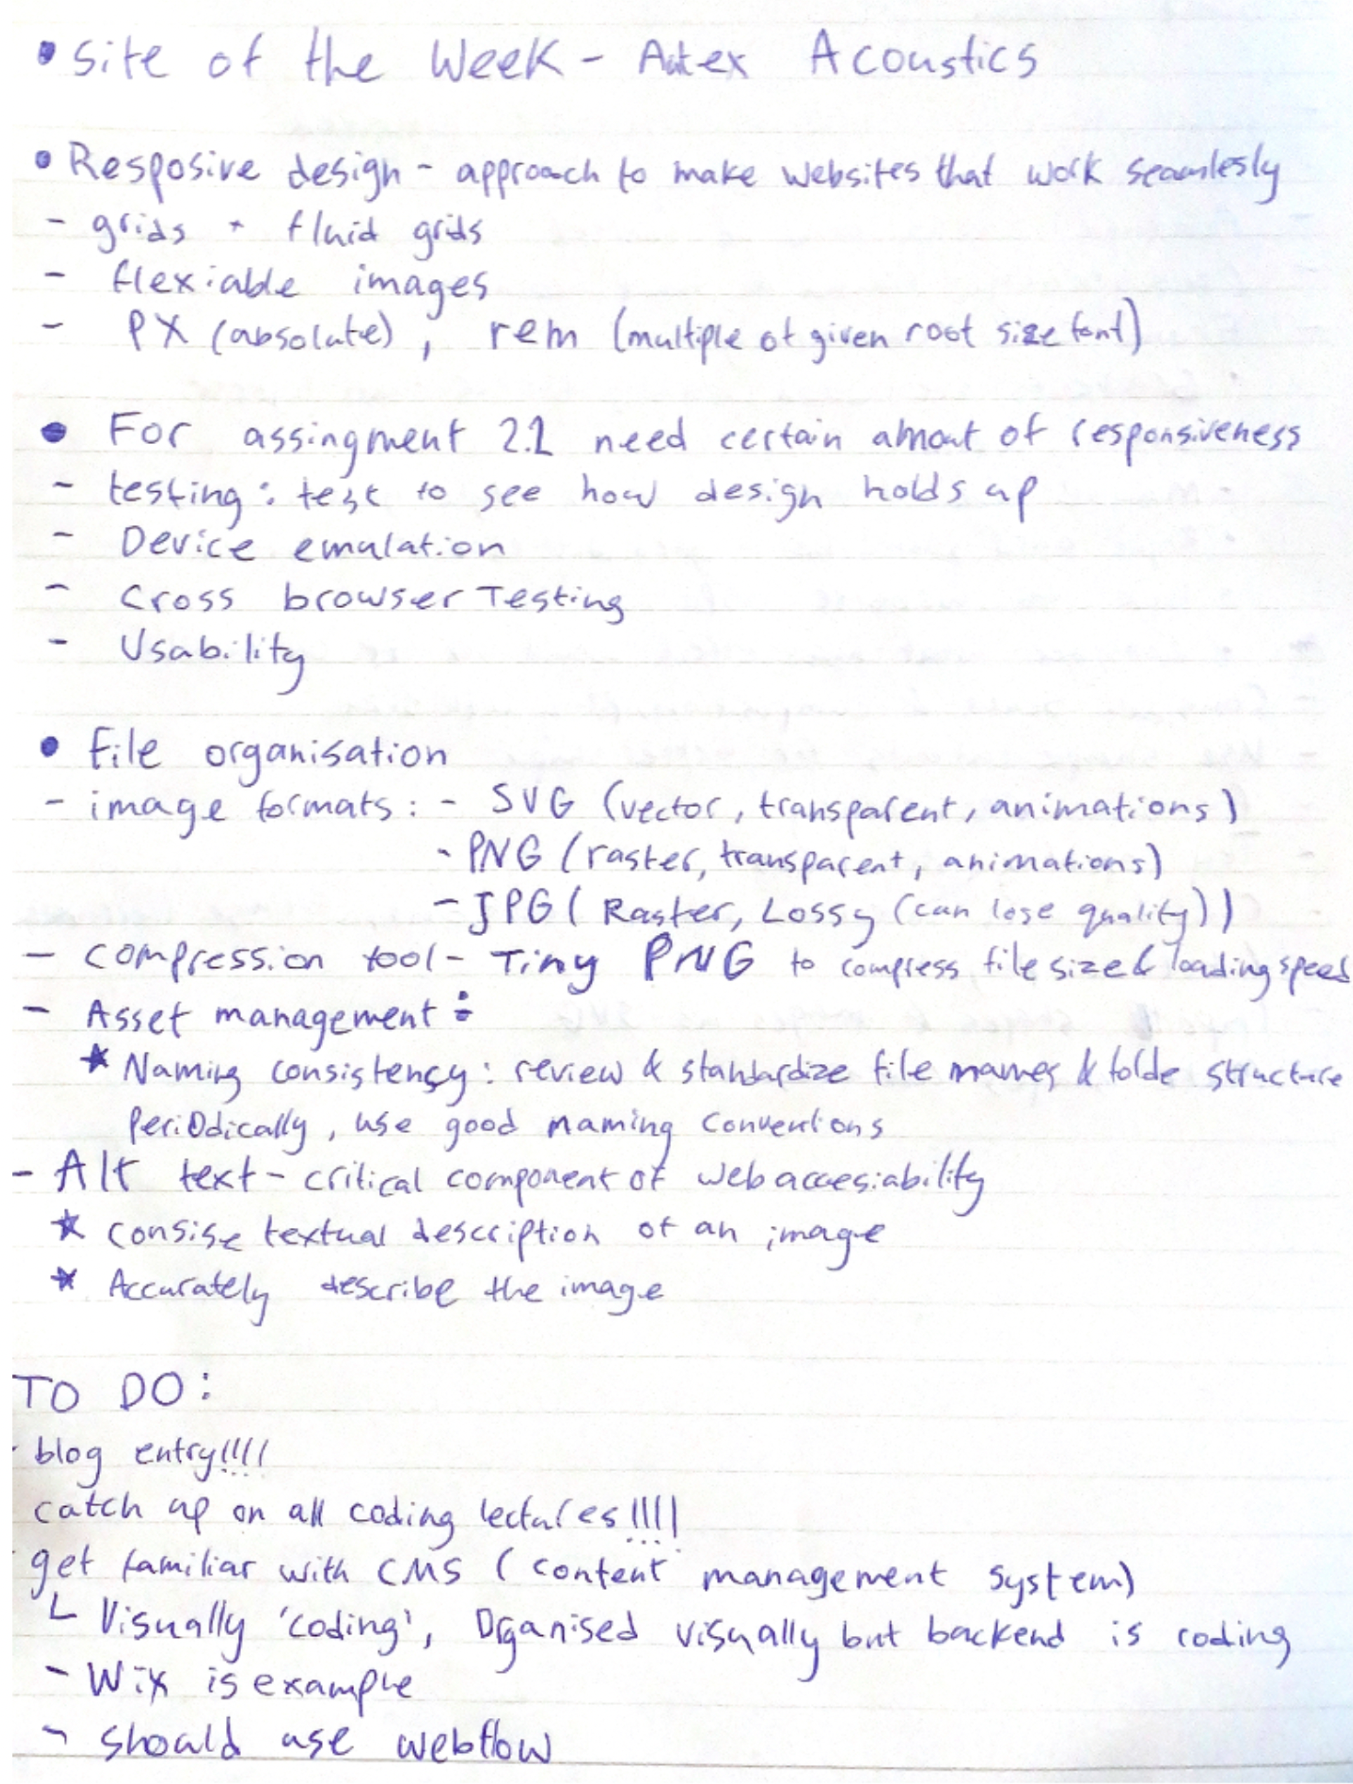 • Site of the Week - Autex Acoustics
• Resposive design - approach to make websites that work seamlesly
- grids + fluid grids
- flexiable images
- PX (absolute), rem (multiple of given root size font)
• For assingment 2.1 need certain amout of responsiveness
- testing: test to see how design holds up
- Device emulation
- Cross browser Testing
- Usability
• File organisation
- image formats: - SVG (vector, transparent, animations)
- PNG (raster, transparent, animations)
- JPG (Raster, Lossy (can lose quality))
- compression tool - Tiny PNG to compress file size & loading speed
- Asset management:
* Naming consistency: review & standardize file names & folde structure
periodically, use good naming conventions
- Alt text - critical component of web accesiability
* consise textual description of an image
* Accurately describe the image
TO DO:
- blog entry!!!!
catch up on all coding lectures!!!!
- get familiar with CMS (content management system)
└ Visually 'coding', Organised visually but backend is coding
- Wix is example
- should use webflow